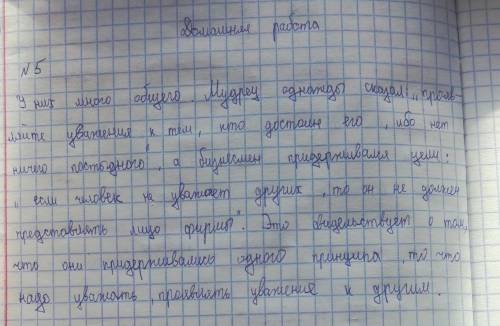 Домашняя работа
№5
У них много общего. Мудрец однажды сказал: „прояв-
ляйте уважения к тем, кто достоин его, ибо нет
ничего постыдного", а бизнесмен придерживался цели:
„если человек не уважает других, то он не должен
представлять лицо фирмы". Это свидельствует о том,
что они придерживались одного принципа, то что
надо уважать, проявлять уважение к другим.